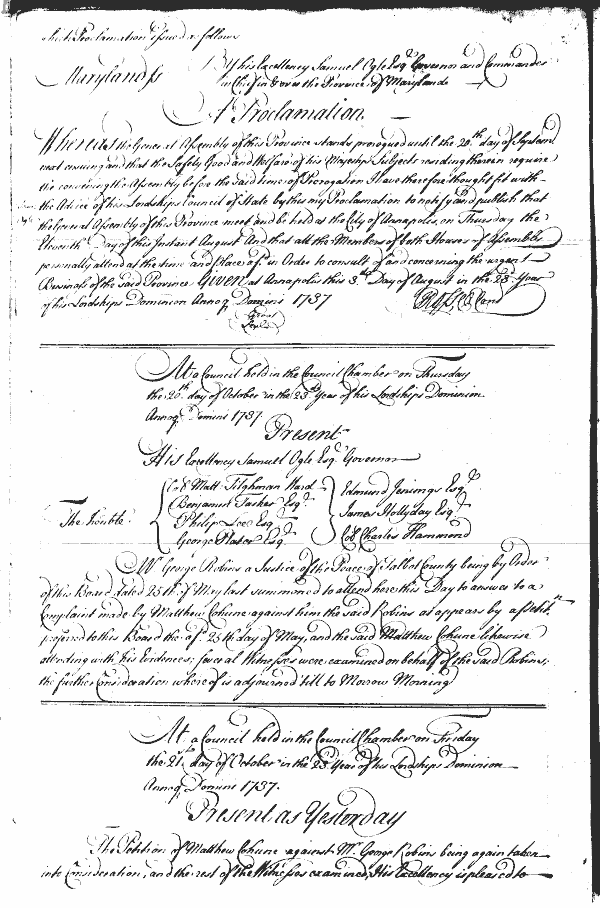 which Proclamation issued as follows
Maryland ss By his Excellency Samuel Ogle Esqr. Governor and Commander
in Chief in & over the Province of Maryland
A Proclamation.
Whereas the General Assembly of this Province stands prorogued until the 20th day of Septem
next ensuing and that the Safety Good and Welfare of his Majestys Subjects residing therein require
the conveining the Assembly before the said time of Prorogation I have therefore thought fit with
the Advice of his Lordships Council of State by this my Proclamation to notify and publish that
the General Assembly of this Province meet and be held at the City of Annapolis, on Thursday the
Eleventh Day of this Instant August And that all the Members of both Houses of Assembly
personally attend at the time and Place afd. in Order to consult of and concerning the urgent
Business of the said Province Given at Annapolis this 3d. Day of August in the 23d. Year
of his Lordships Dominion Annoq. Domini 1737
Great
Seal
At a Council held in the Council Chamber on Thursday
the 20th. day of October in the 23d. Year of his Lordships Dominion
Annoq. Domini 1737.
Present
His Excellency Samuel Ogle Esqr. Governor
Col. Matt. Tilghman Ward Edmund Jenings Esqr.
Benjamin Tasker Esqr. James Hollyday Esqr.
The Honble. Philip Lee Esqr. Col. Charles Hammond
George Plater Esqr.
Mr. George Robins a Justice of the Peace of Talbot County being by Order
of this Board dated 25th. of May last summoned to attend here this Day to answer to a
Complaint made by Matthew Cohune against him the said Robins as appears by a Petitn.
preferred to this Board the afd. 25th day of May, and the said Matthew Cohune likewise
attending with his Evidences; several Witnesses were examined on behalf of the said Robins;
the further Consideration whereof is adjourned till to Morrow Morning
At a Council held in the Council Chamber on Friday
the 21st. day of October in the 23d. Year of his Lordships Dominion
Annoq. Domini 1737.
Present as Yesterday
The Petition of Matthew Cohune against Mr. George Robins being again taken
into Consideration, and the rest of the Witnesses examined, His Excellency is pleased to